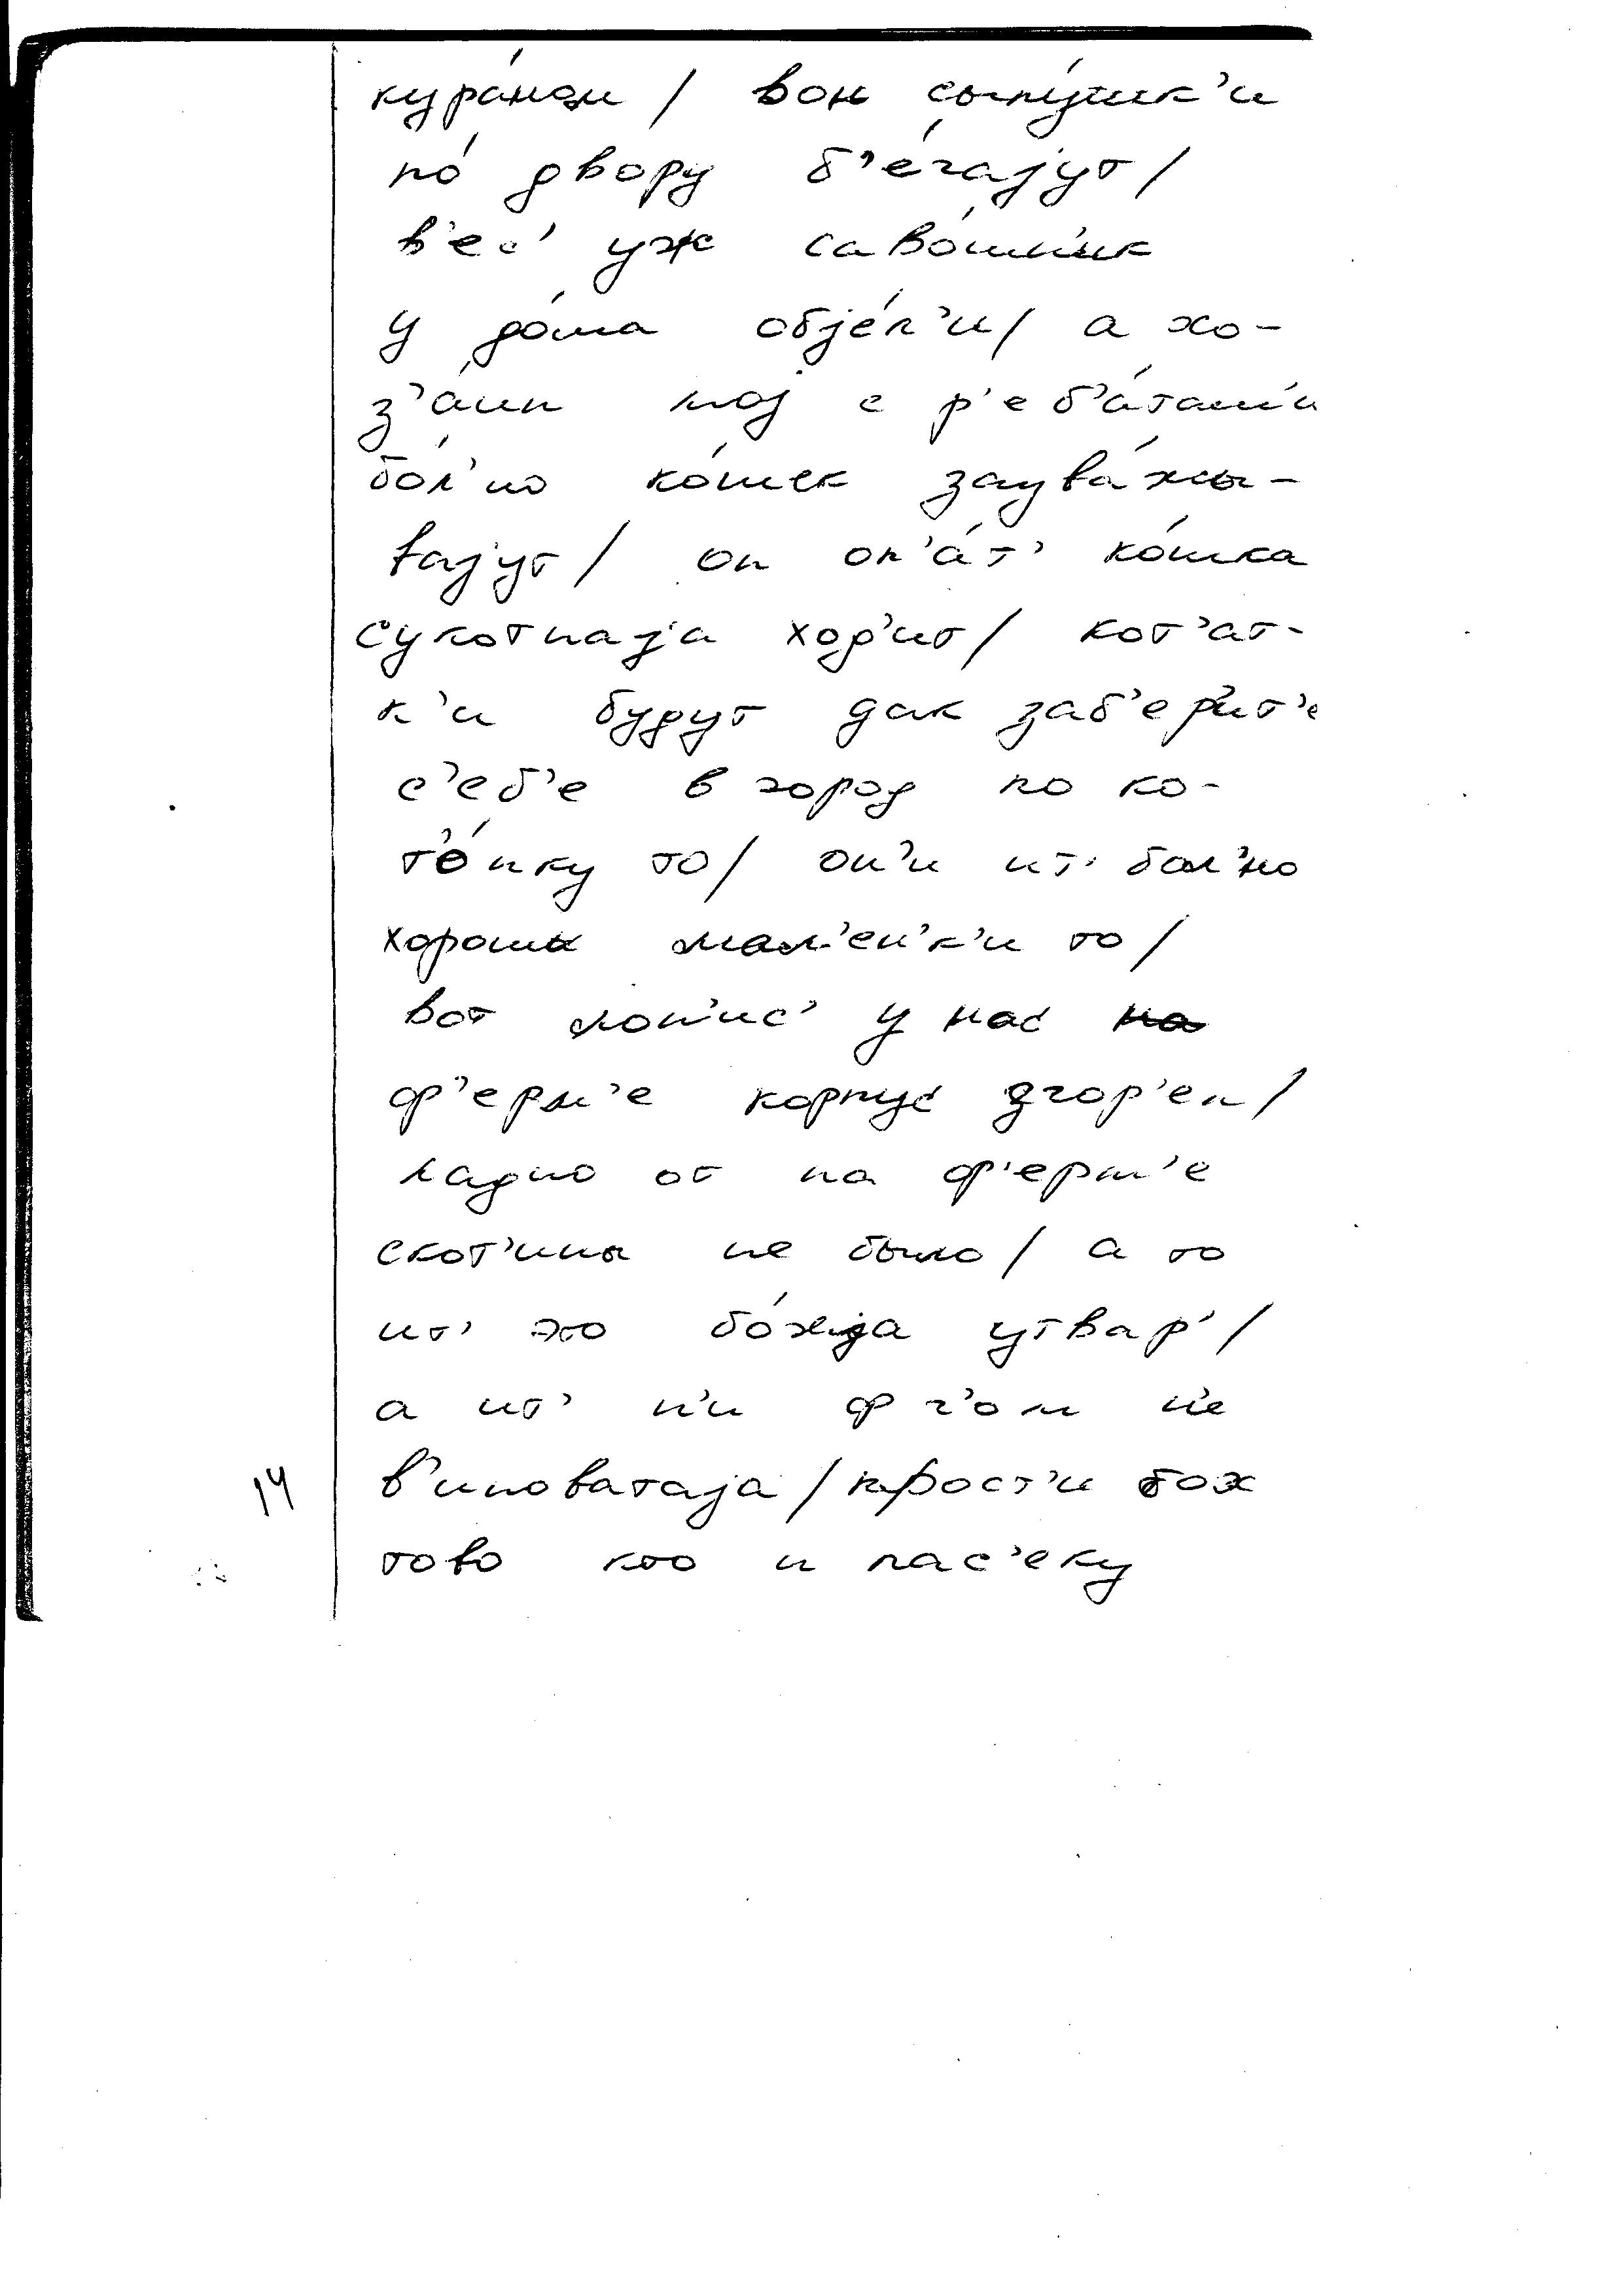 кура́нди / вон сыпу́шк'и
по́ двору б'е́гајут /
в'ес' уж саво́шн'ик
у до́ма објéл'и / а хо-
з'а́ин мој с р'еб'а́там'и
бо́л'но ко́шек заува́жы-
вајут / он оп'а́т' ко́шка
сукотнаја ход'ит / кот'ат-
к'и будут дак заб'ер'ит'е
с'еб'е в город по ко-
т'о́нку то / он'и ит' бол'но
хорошы мал'ен'к'и то /
вот лон'ис' у нас на
ф'ерм'е корпус згор'ел /
ладно от на ф'ерм'е
скот'ины не было / а то
ит' это бо́жја утвар' /
а ит' н'и ф ч'ом н'е
14 в'иноватаја / прост'и бох
тово кто и пас'еку